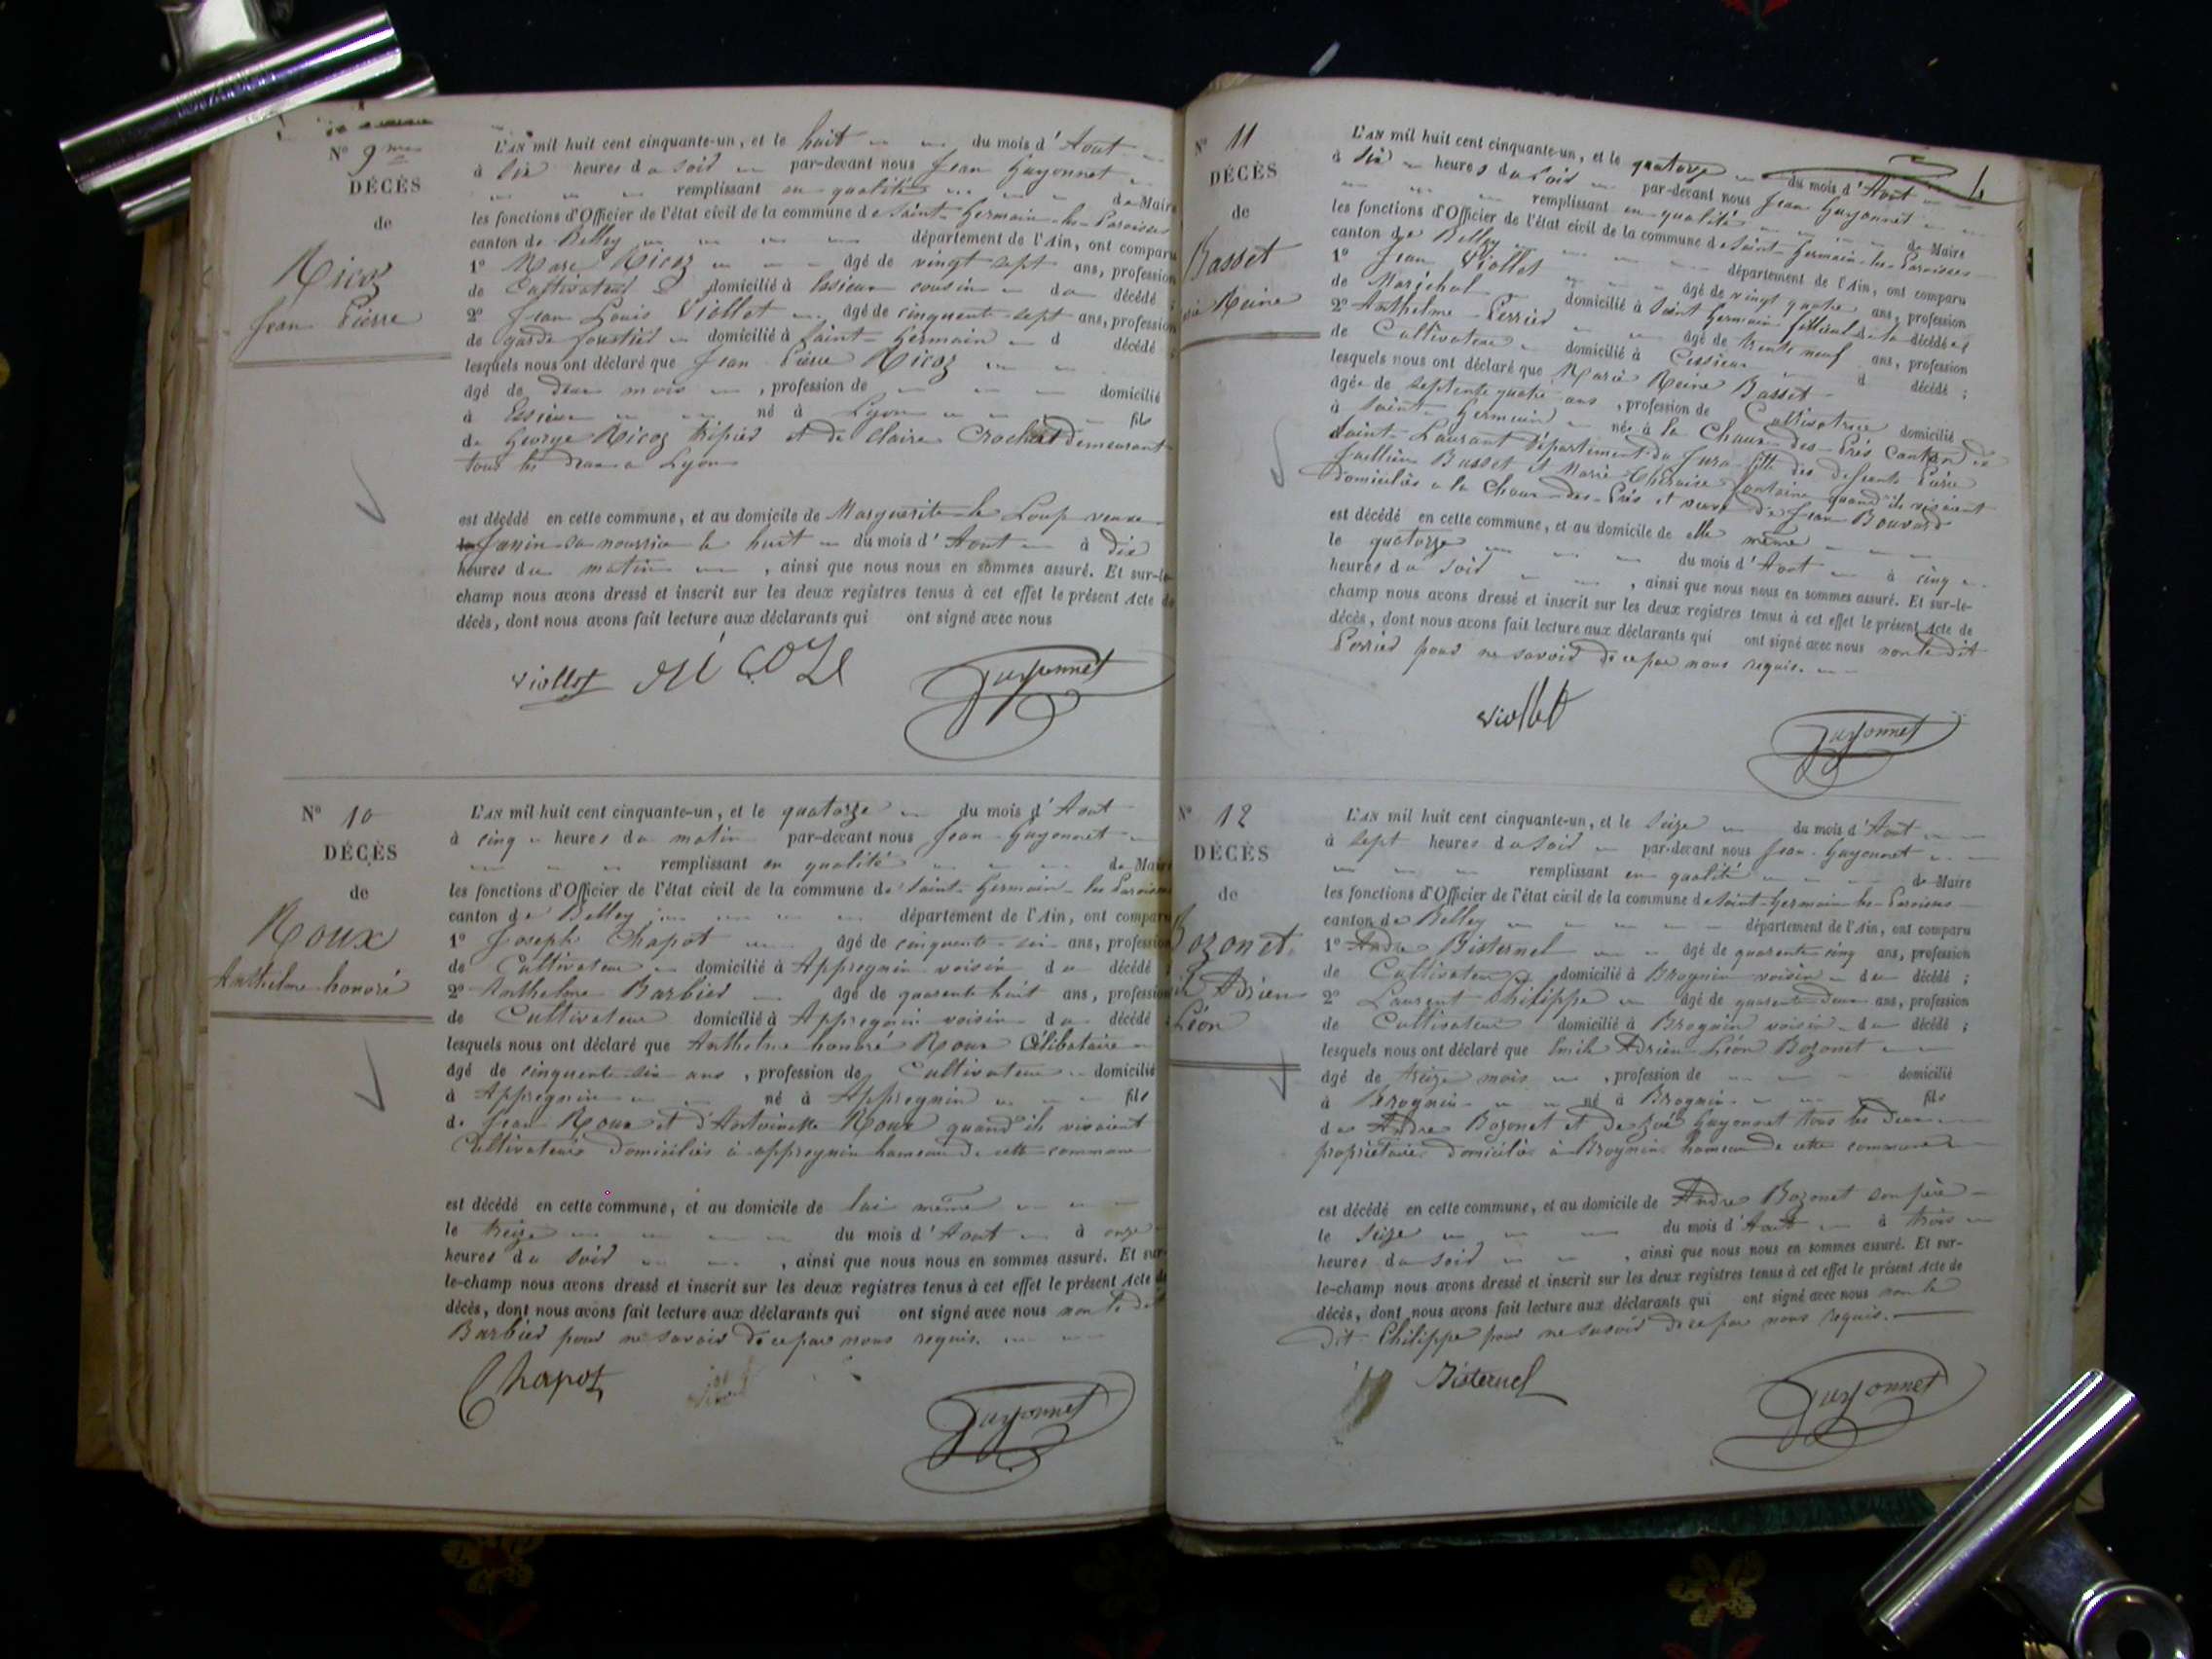 N° 9me
DÉCÈS
de
Ricoz
Jean Pierre
L'AN mil huit cent cinquante-un, et le huit du mois d'Aout
à six heures du soir par-devant nous Jean Guyonnet
remplissant en qualité de Maire
les fonctions d'Officier de l'état civil de la commune de Saint-Germain-les-Paroisses
canton de Belley département de l'Ain, ont comparu
1° Marc Ricoz âgé de vingt sept ans, profession
de Cultivateur domicilié à Essieux cousin du décédé ;
2° Jean Louis Viollet âgé de cinquante-sept ans, profession
de garde forestier domicilié à Saint-Germain d décédé ;
lesquels nous ont déclaré que Jean Pierre Ricoz
âgé de deux mois , profession de domicilié
à Essieux né à Lyon fils
de George Ricoz tripier et de Claire Crochet demeurant
tous les deux a Lyon
est décédé en cette commune, et au domicile de Marguerite le Loup veuve
Janin sa nourrice le huit du mois d'Aout à dix
heures du matin , ainsi que nous nous en sommes assuré. Et sur-le-
champ nous avons dressé et inscrit sur les deux registres tenus à cet effet le présent Acte de
décès, dont nous avons fait lecture aux déclarants qui ont signé avec nous
Viollet RICOZ Guyonnet
N° 10
DÉCÈS
de
Roux
Anthelme honoré
L'AN mil huit cent cinquante-un, et le quatorze du mois d'Aout
à cinq heures du matin par-devant nous Jean Guyonnet
remplissant en qualité de Maire
les fonctions d'Officier de l'état civil de la commune de Saint-Germain-les-Paroisses
canton de Belley département de l'Ain, ont comparu
1° Joseph Chapot âgé de cinquante-six ans, profession
de Cultivateur domicilié à Appregnin voisin du décédé ;
2° Anthelme Barbier âgé de quarente huit ans, profession
de Cultivateur domicilié à Appregnin voisin du décédé ;
lesquels nous ont déclaré que Anthelme honoré Roux Célibataire
âgé de cinquente-six ans , profession de Cultivateur domicilié
à Appregnin né à Appregnin fils
de Jean Roux et d'Antoinette Roux quand ils vivaient
Cultivateurs domiciliés à appregnin hameau de cette commune
est décédé en cette commune, et au domicile de lui même
le treize du mois d'Aout à onze
heures du soir , ainsi que nous nous en sommes assuré. Et sur-
le-champ nous avons dressé et inscrit sur les deux registres tenus à cet effet le présent Acte de
décès, dont nous avons fait lecture aux déclarants qui ont signé avec nous non le dit
Barbier pour ne savoir de ce par nous requis.
Chapot Guyonnet
N° 11
DÉCÈS
de
Basset
Reine
L'AN mil huit cent cinquante-un, et le quatorze du mois d'Aout
à six heures du soir par-devant nous Jean Guyonnet
remplissant en qualité de Maire
les fonctions d'Officier de l'état civil de la commune de Saint-Germain-les-Paroisses
canton de Belley département de l'Ain, ont comparu
1° Jean Viollet âgé de vingt quatre ans, profession
de Maréchal domicilié à Saint Germain filleul de la décédée ;
2° Anthelme Perrier âgé de trente neuf ans, profession
de Cultivateur domicilié à Cessieux d décédé ;
lesquels nous ont déclaré que Marie Reine Basset
âgée de septente quatre ans , profession de Cultivatrice domicilié
à Saint-Germain née à la Chaux-des-Prés Canton de
Saint-Laurant Département du Jura fille des défeants Pierre
Basset et Marie Théraise Fontaine quand ils vivaient
domiciliés a la Chaux-des-Prés et veuve de Jean Bouvard
est décédé en cette commune, et au domicile de elle même
le quatorze du mois d'Aout à cinq
heures du soir , ainsi que nous nous en sommes assuré. Et sur-le-
champ nous avons dressé et inscrit sur les deux registres tenus à cet effet le présent Acte de
décès, dont nous avons fait lecture aux déclarants qui ont signé avec nous non le dit
Perrier pour ne savoir de ce par nous requis.
Viollet Guyonnet
N° 12
DÉCÈS
de
Bozonet
Adrien
Léon
L'AN mil huit cent cinquante-un, et le Seize du mois d'Aout
à sept heures du soir par-devant nous Jean Guyonnet
remplissant en qualité de Maire
les fonctions d'Officier de l'état civil de la commune de Saint-Germain-les-Paroisses
canton de Belley département de l'Ain, ont comparu
1° Andre Bisternel âgé de quarente cinq ans, profession
de Cultivateur domicilié à Brognin voisin du décédé ;
2° Laurent Philippe âgé de quarente-deux ans, profession
de Cultivateur domicilié à Brognin voisin du décédé ;
lesquels nous ont déclaré que Emile Adrien Léon Bozonet
âgé de treize mois , profession de domicilié
à Brognin né à Brognin fils
de Andre Bozonet et de Zoé Guyonnet tous les deux
propriétaires domiciliés à Brognin hameau de cette commune
est décédé en cette commune, et au domicile de Andre Bozonet son père
le Seize du mois d'Aout à trois
heures du soir , ainsi que nous nous en sommes assuré. Et sur-
le-champ nous avons dressé et inscrit sur les deux registres tenus à cet effet le présent Acte de
décès, dont nous avons fait lecture aux déclarants qui ont signé avec nous non le
dit Philippe pour ne savoir de ce par nous requis.
Bisternel Guyonnet